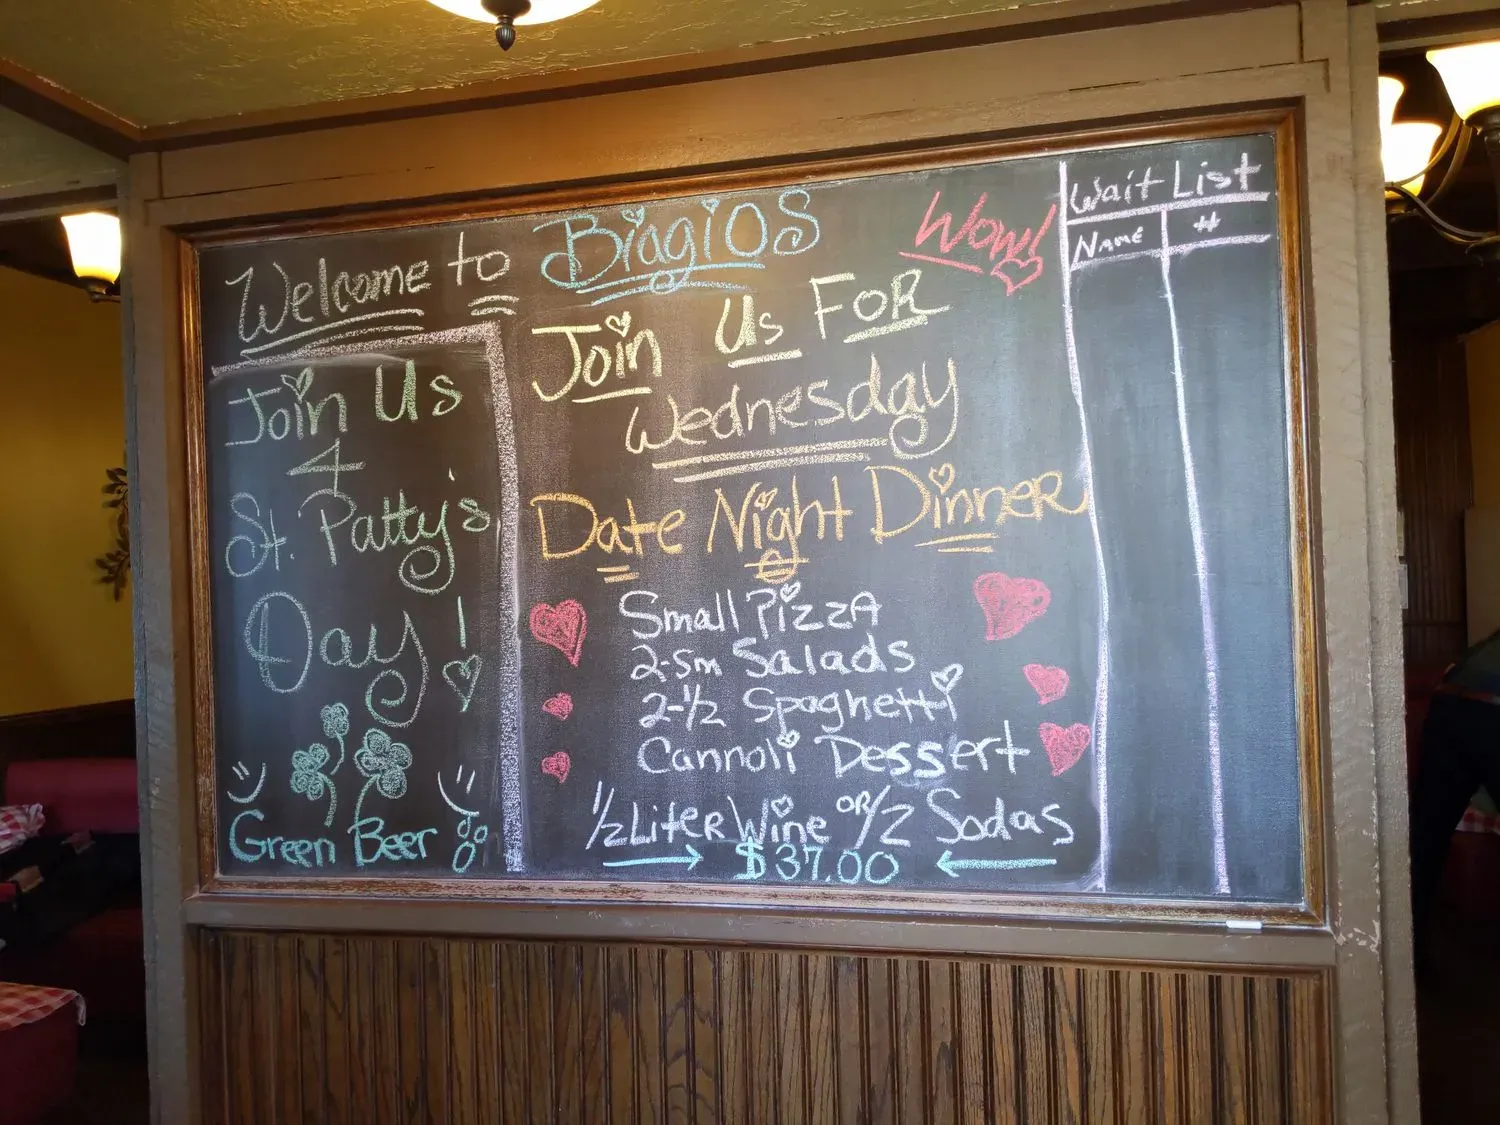 Welcome to BiagiOS
WOW!
Join Us
4
St. Patty's
Day!
Green Beer
Join Us FOR
Wednesday
Date Night DinneR
Small PizzA
2-Sm Salads
2-1/2 Spaghetti
Cannoli Dessert
1/2 LiteR Wine OR/2 Sodas
$37.00
Wait List
NAME #